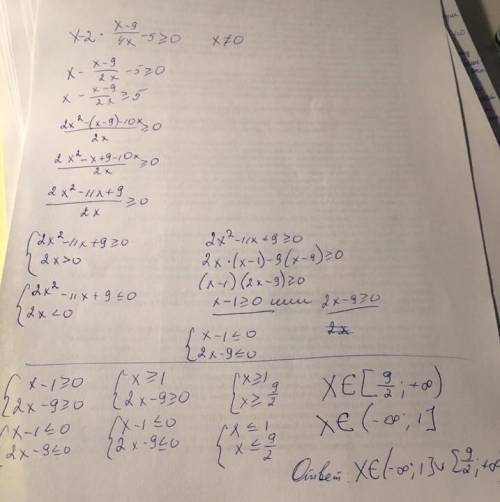 x-2·(x-9)/4x-5≥0 x≠0
x-(x-9)/2x-5≥0
x-(x-9)/2x≥5
(2x²-(x-9)-10x)/2x≥0
(2x²-x+9-10x)/2x≥0
(2x²-11x+9)/2x≥0
{2x²-11x+9≥0
2x>0
{2x²-11x+9≤0
2x<0
2x²-11x+9≥0
2x·(x-1)-9(x-9)≥0
(x-1)(2x-9)≥0
x-1≥0 или 2x-9≥0
{x-1≤0
2x-9≤0
{x-1≥0 {x≥1 {x≥1 x∈[9/2;+∞)
2x-9≥0 2x-9≥0 x≥9/2
{x-1≤0 {x-1≤0 {x≤1 x∈(-∞;1]
2x-9≤0 2x-9≤0 x≤9/2
Ответ: x∈(-∞;1]∪[9/2;+∞